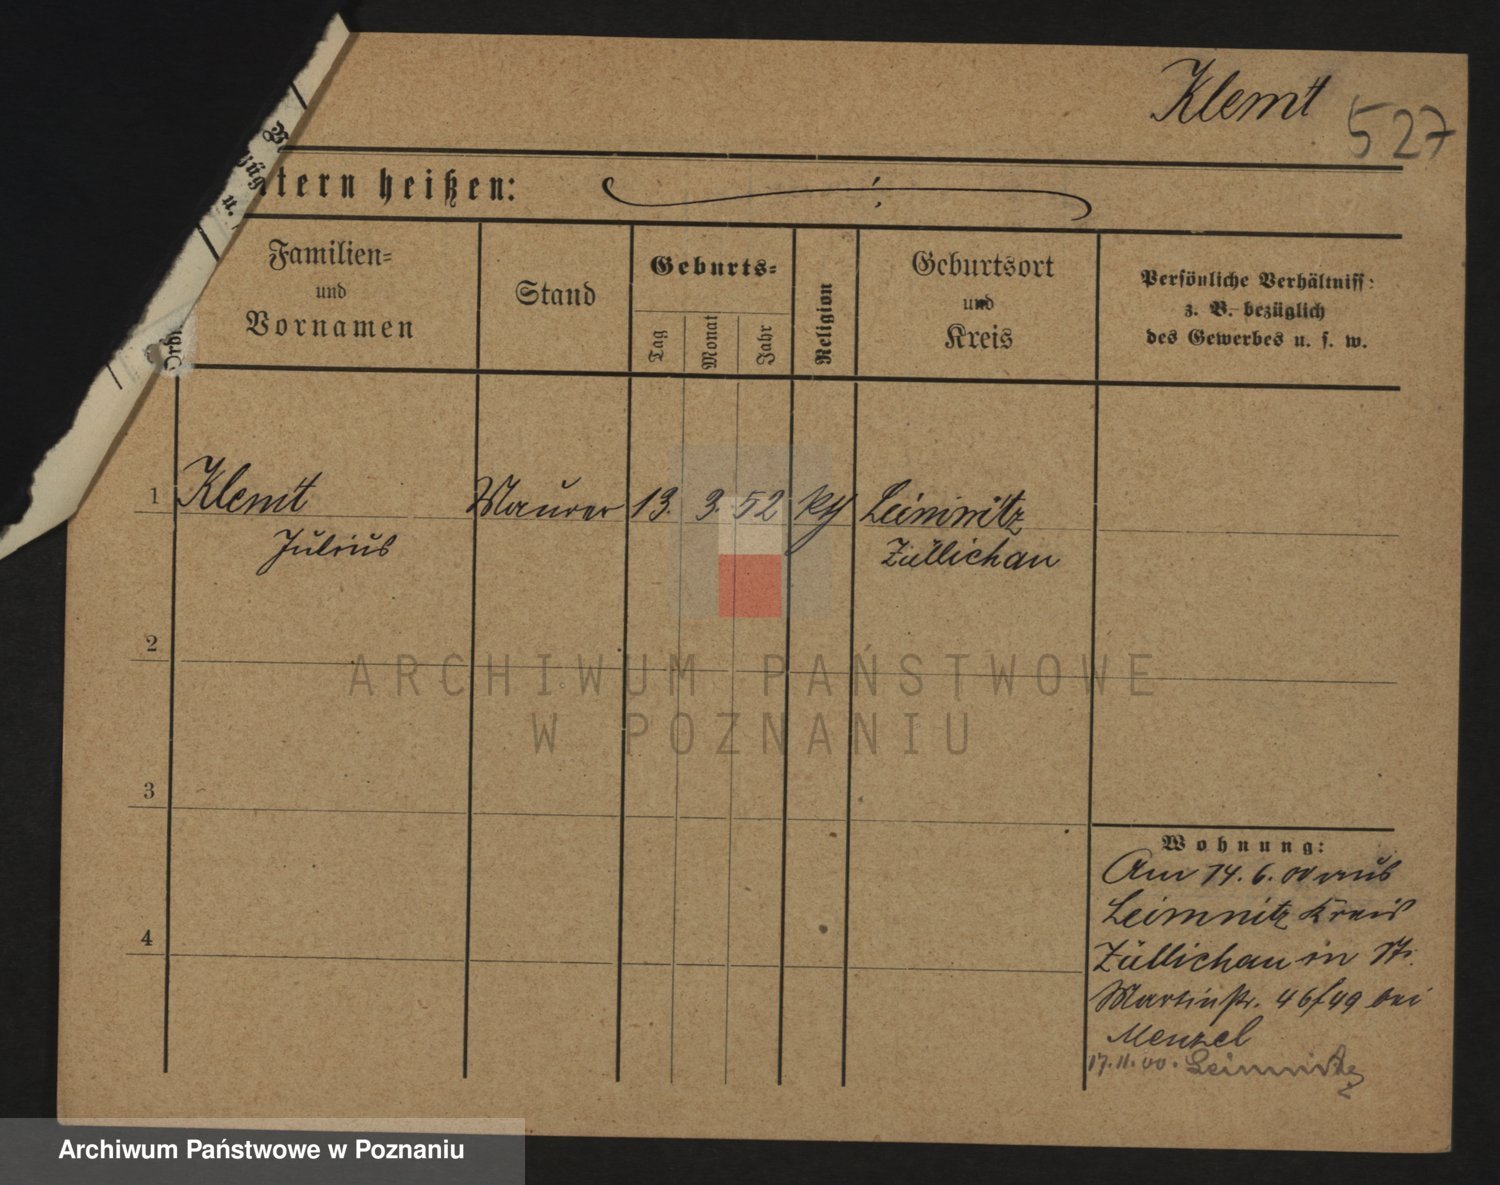 Klemt
527
ltern heißen:
Familien=
und
Vornamen
Stand
Geburts=
Tag
Monat
Jahr
Religion
Geburtsort
und
Kreis
Persönliche Verhältniss:
z. B. bezüglich
des Gewerbes u. s. w.
1 Klemt Maurer 13. 3. 52 Leimnitz
Julius Züllichau
2
ARCHIWUM PAŃSTWOWE
W POZNANIU
3
4
Wohnung:
Am 14. 6. 00 aus
Leimnitz Kreis
Züllichau in St.
Martinstr. 46/49 bei
Menzel
17. 11. 00. Leimnitz
Archiwum Państwowe w Poznaniu